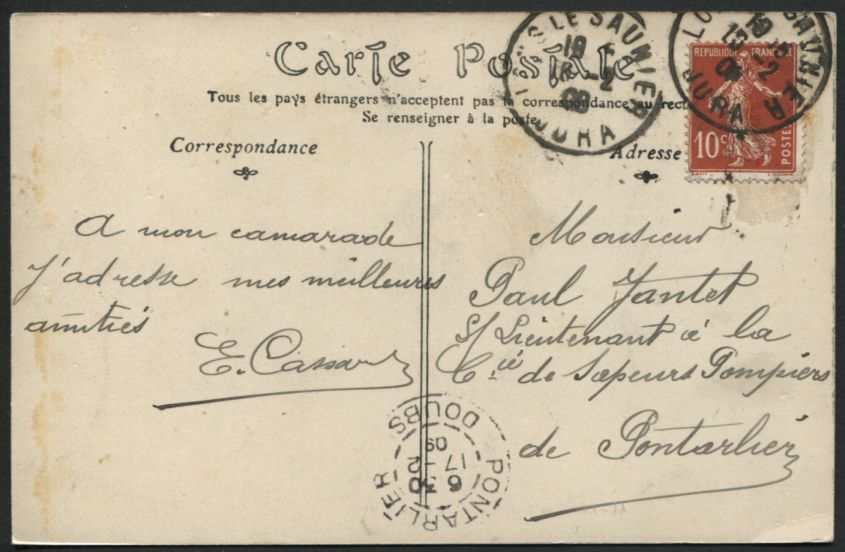 Carte Postale
Tous les pays étrangers n'acceptent pas la correspondance au recto
Se renseigner à la poste
Correspondance
Adresse
A mon camarade
J'adresse mes meilleures
amitiés
E.
Monsieur
Paul Jantet
S/ Lieutenant à la
Cie de Sapeurs Pompiers
de Pontarlier
REPUBLIQUE FRANÇAISE
10c
POSTES
LE SAUNIER
JURA
SAUNIER
JURA
PONTARLIER
6 30
17-2
09
DOUBS